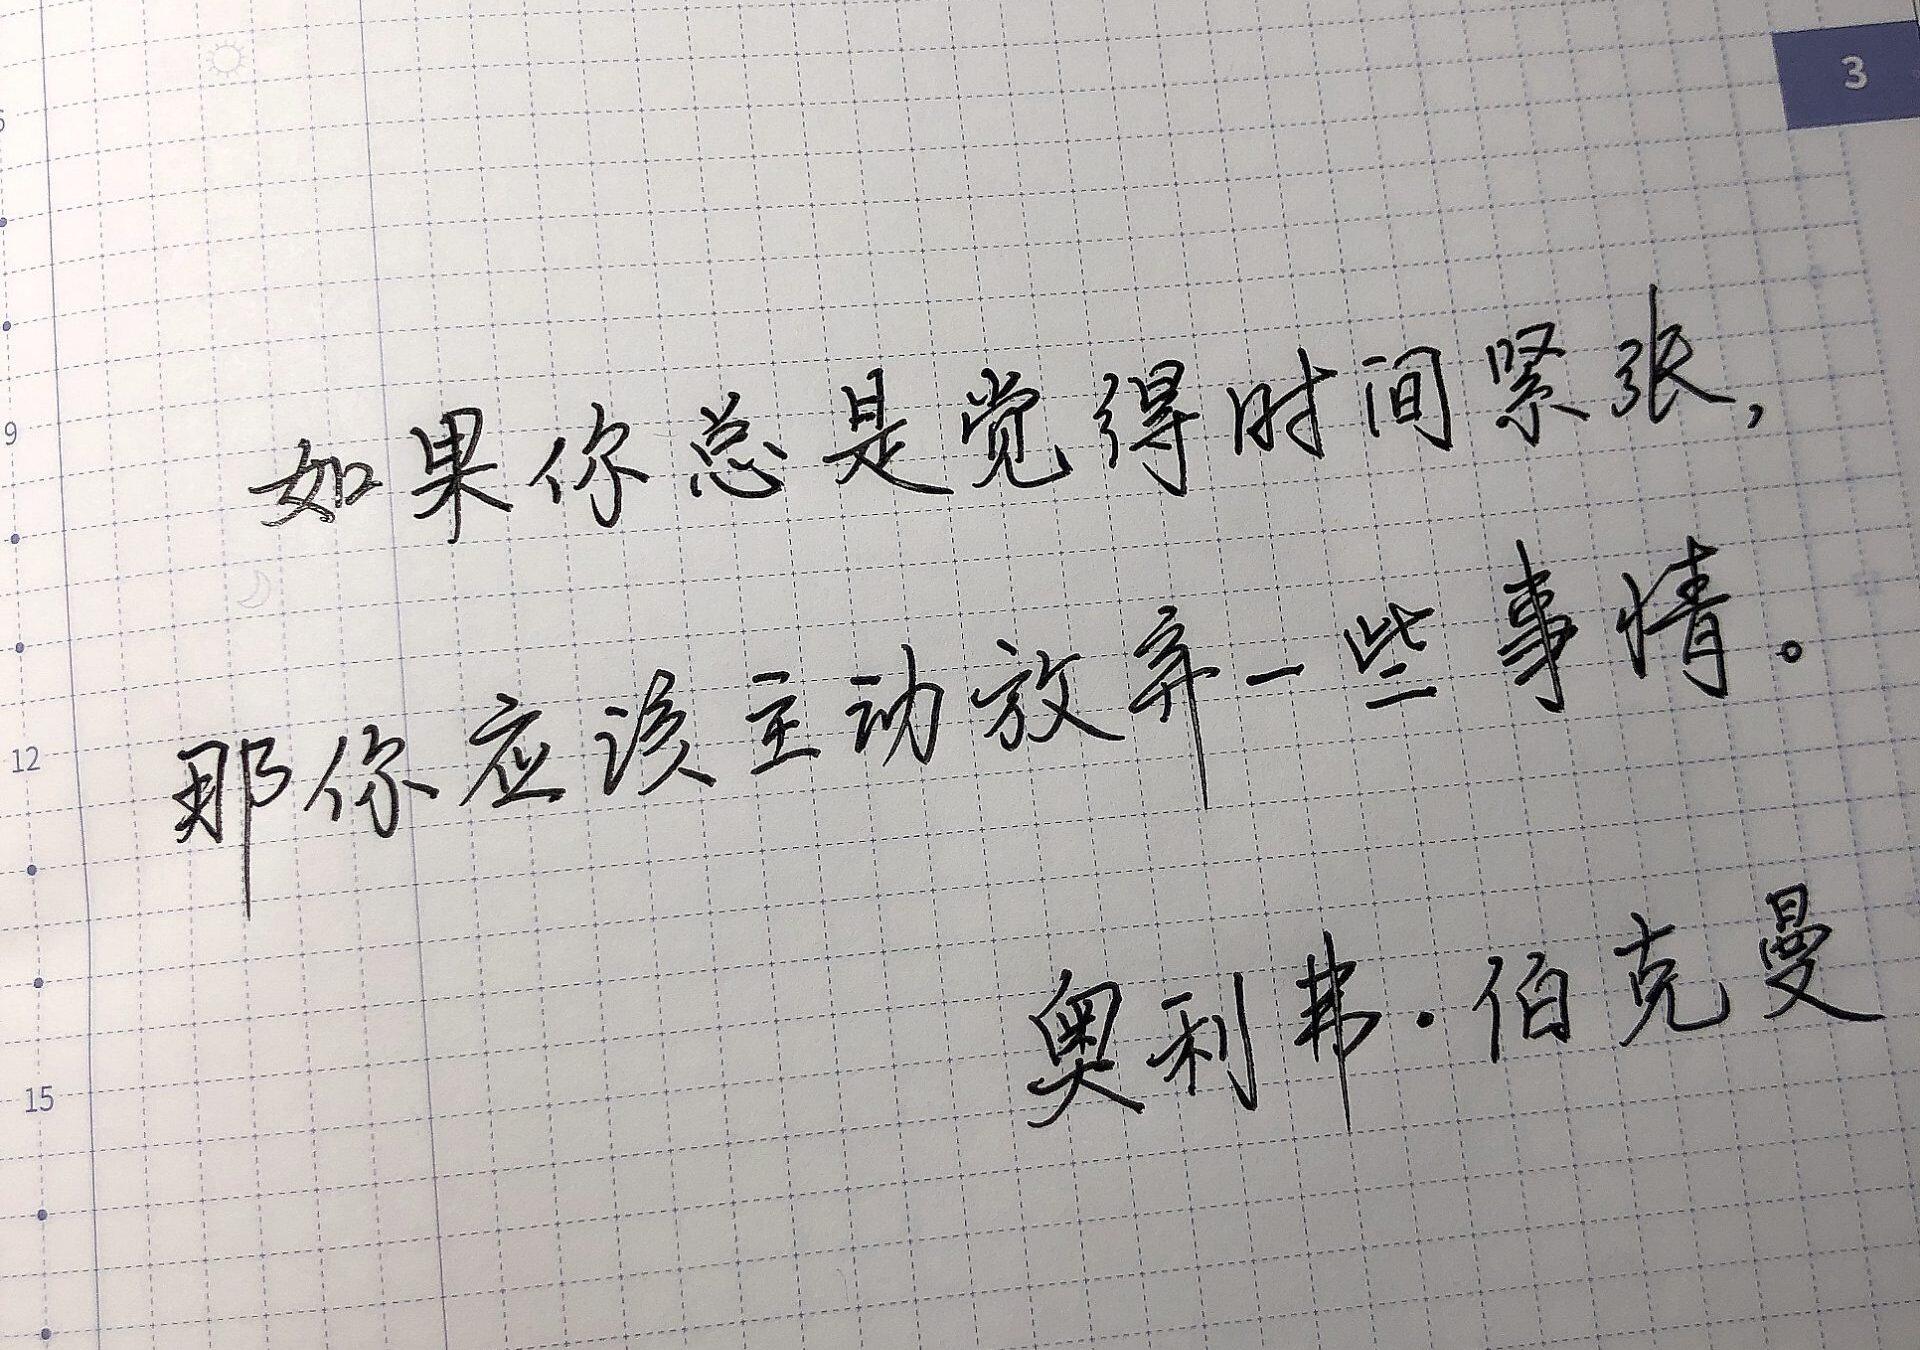 3
9
如果你总是觉得时间紧张,
12
那你应该主动放弃一些事情。
15
奥利弗·伯克曼